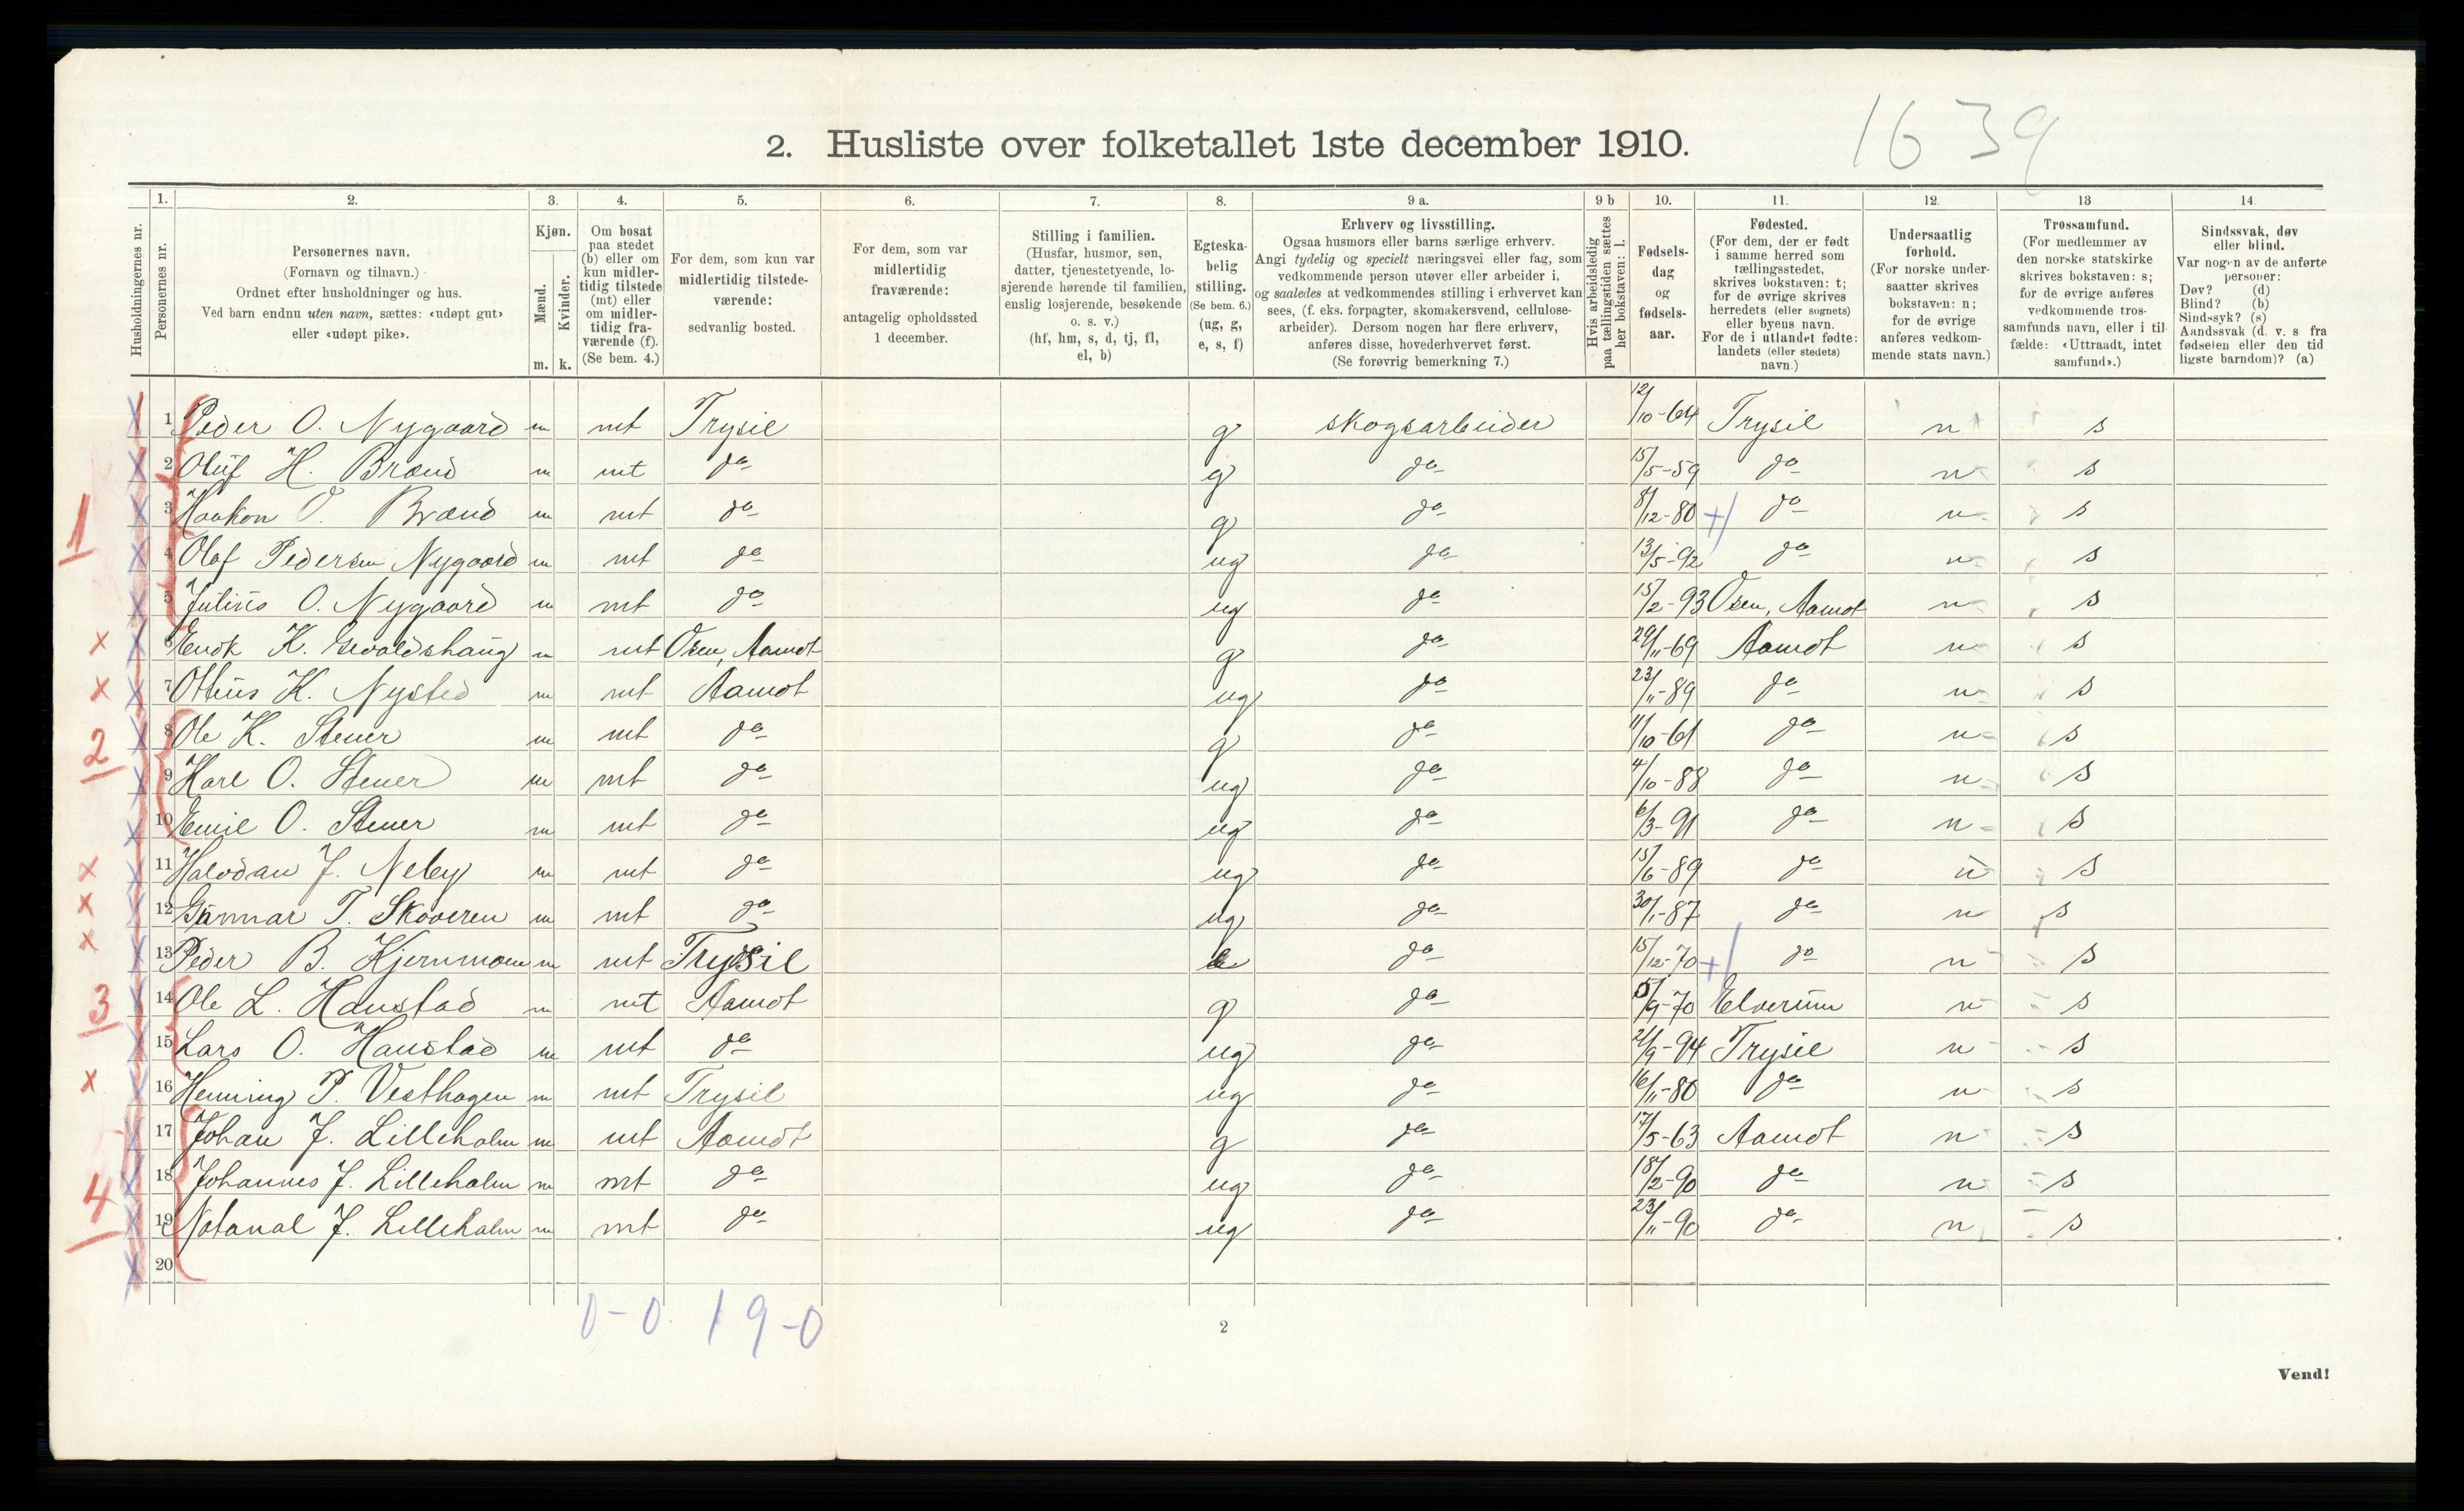 1639
2. Husliste over folketallet 1ste december 1910.
Husholdningernes nr.
1. Personernes nr.
2. Personernes navn. (Fornavn og tilnavn.) Ordnet efter husholdninger og hus. Ved barn endnu uten navn, sættes: «udøpt gut» eller «udøpt pike».
3. Kjøn. Mænd. m. Kvinder. k.
4. Om bosat paa stedet (b) eller om kun midlertidig tilstede (mt) eller om midlertidig fraværende (f). (Se bem. 4.)
5. For dem, som kun var midlertidig tilstedeværende: sedvanlig bosted.
6. For dem, som var midlertidig fraværende: antagelig opholdssted 1 december.
7. Stilling i familien. (Husfar, husmor, søn, datter, tjenestetyende, losjerende hørende til familien, enslig losjerende, besøkende o. s. v.) (hf, hm, s, d, tj, fl, el, b)
8. Egteskabelig stilling. (Se bem. 6.) (ug, g, e, s, f)
9 a. Erhverv og livsstilling. Ogsaa husmors eller barns særlige erhverv. Angi tydelig og specielt næringsvei eller fag, som vedkommende person utøver eller arbeider i, og saaledes at vedkommendes stilling i erhvervet kan sees, (f. eks. forpagter, skomakersvend, cellulosearbeider). Dersom nogen har flere erhverv, anføres disse, hovederhvervet først. (Se forøvrig bemerkning 7.)
9 b Hvis arbeidsledig paa tællingstiden sættes her bokstaven: l.
10. Fødselsdag og fødselsaar.
11. Fødested. (For dem, der er født i samme herred som tællingsstedet, skrives bokstaven: t; for de øvrige skrives herredets (eller sognets) eller byens navn. For de i utlandet fødte: landets (eller stedets) navn.)
12. Undersaatlig forhold. (For norske undersaatter skrives bokstaven: n; for de øvrige anføres vedkommende stats navn.)
13 Trossamfund. (For medlemmer av den norske statskirke skrives bokstaven: s; for de øvrige anføres vedkommende trossamfunds navn, eller i tilfælde: «Uttraadt, intet samfund».)
14. Sindssvak, døv eller blind. Var nogen av de anførte personer: Døv? (d) Blind? (b) Sindssyk? (s) Aandssvak (d. v. s fra fødselen eller den tidligste barndom)? (a)
1 Peder O. Nygaard m mt Trysil g skogsarbeider 12/10-64 Trysil n s
2 Oluf H. Brænd m mt do g do 15/5-59 do n s
1 3 Haakon O. Brænd m mt do g do 8/12-80 do n s
4 Olaf Pedersen Nygaard m mt do ug do 13/5-92 do n s
5 Julius O. Nygaard m mt do ug do 15/2-93 Osen, Aamot n s
x 6 K. m mt Osen, Aamot g do 29/11-69 Aamot n s
x 7 K. Nysted m mt Aamot ug do 23/11-89 do n s
2 8 Ole K. Stener m mt do g do 11/10-61 do n s
9 Karl O. Stener m mt do ug do 4/10-88 do n s
10 Emil O. Stener m mt do ug do 6/3-91 do n s
x 11 Halvdan J. Neby m mt do ug do 15/6-89 do n s
x 12 Gunnar T. Skoveren m mt do ug do 30/1-87 do n s
x 13 Peder B. Kjernmoen m mt Trysil e do 15/12-70 do n s
3 14 Ole L. Hanstad m mt Aamot g do 5/9-70 Elverum n s
15 Lars O. Hanstad m mt do ug do 21/9-94 Trysil n s
x 16 Henning P. Vesthagen m mt Trysil ug do 16/11-80 do n s
17 Johan J. Lilleholm m mt Aamot g do 17/5-63 Aamot n s
4 18 Johannes J. Lilleholm m mt do ug do 18/2-90 do n s
19 Natanal J. Lilleholm m mt do ug do 23/11-90 do n s
20
0-0 19-0
2
Vend!